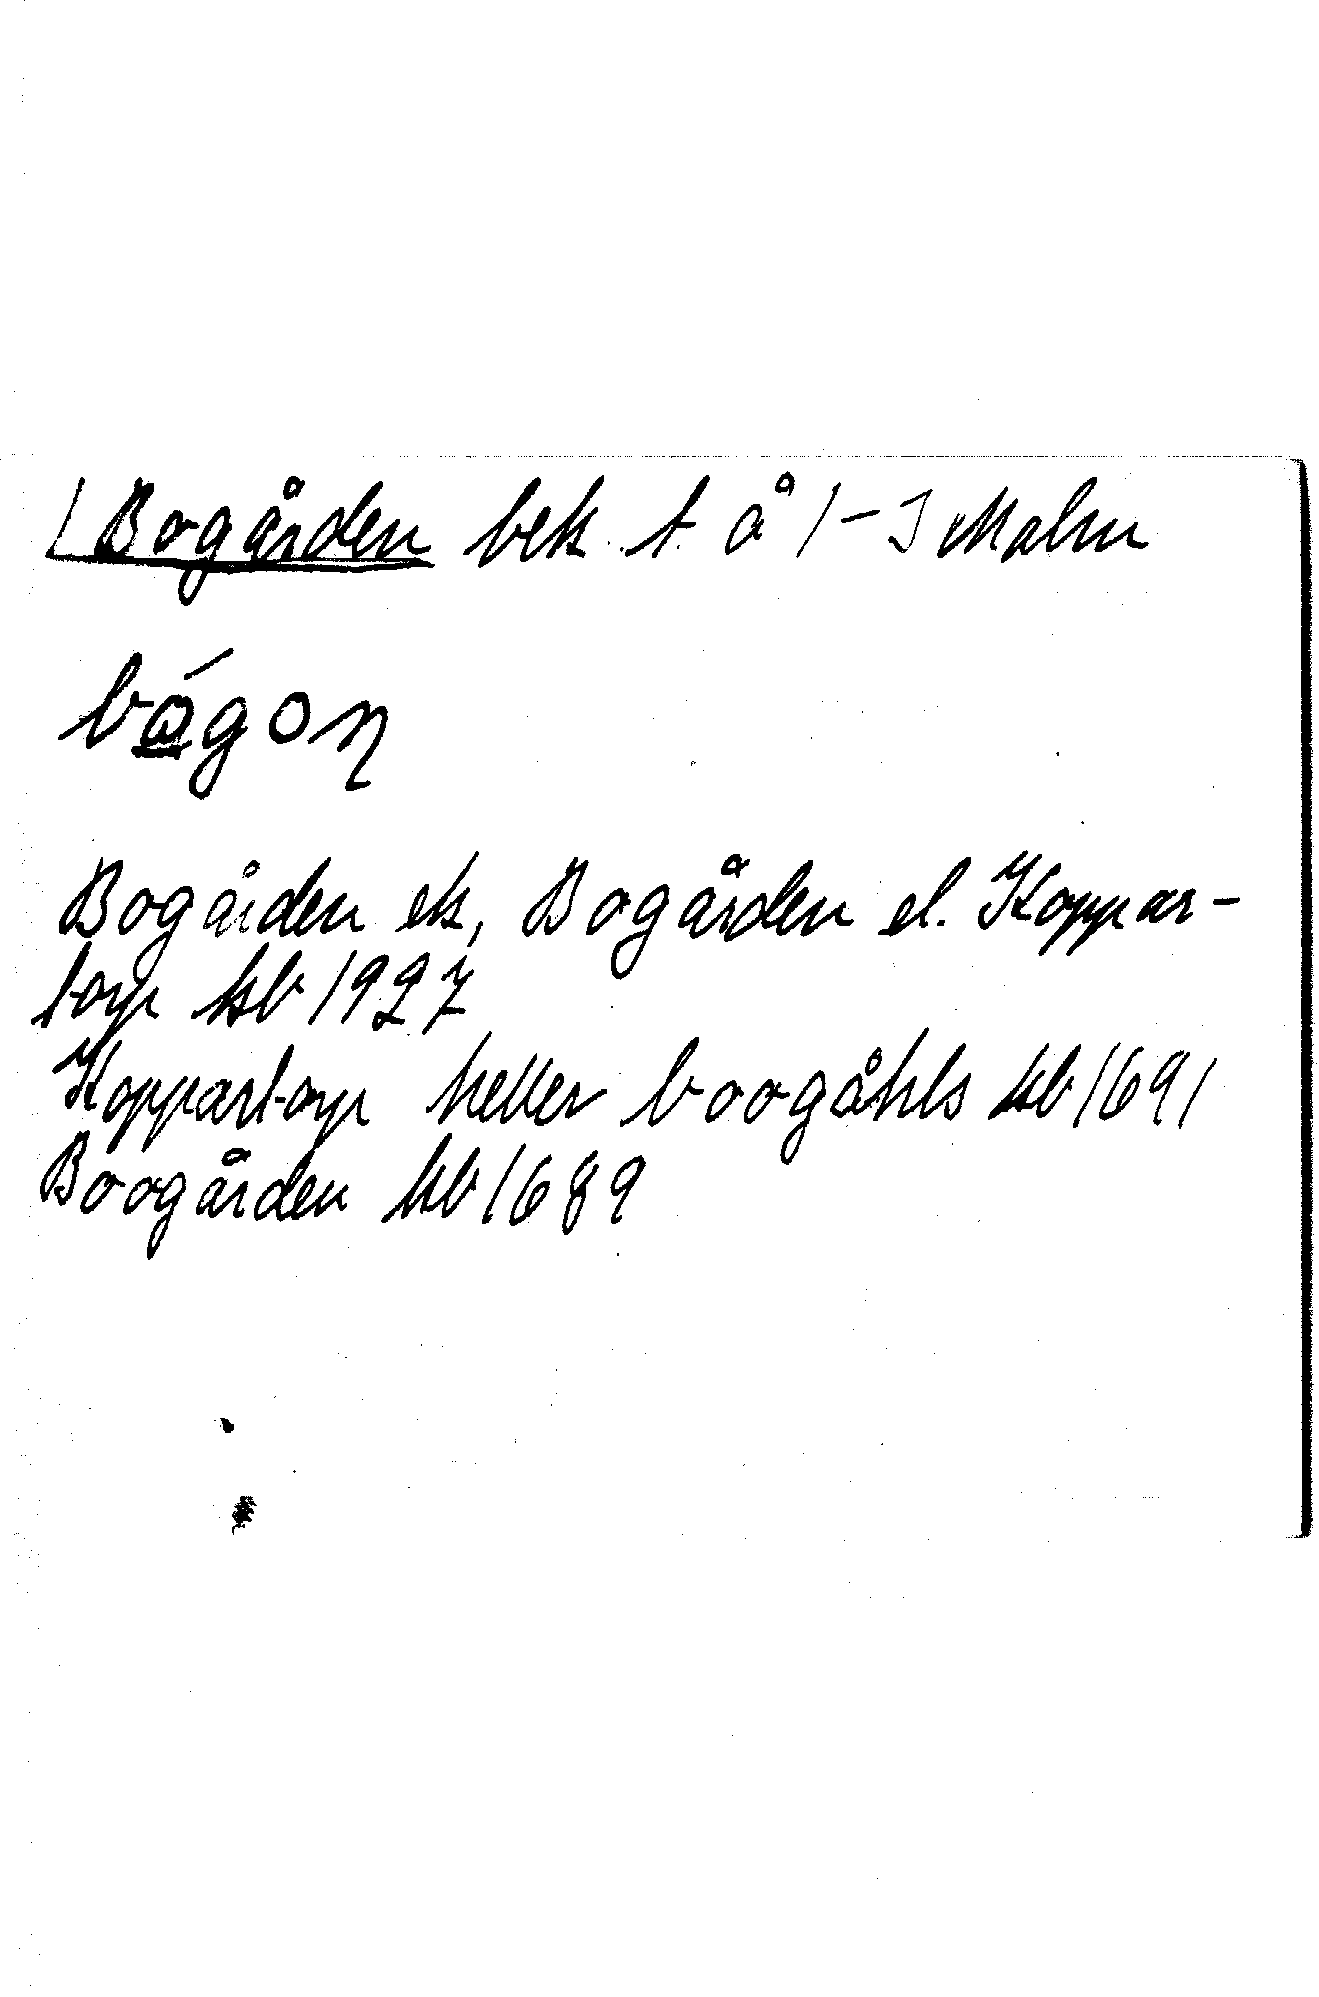 [Bogården bek. t. å 1-] Malm
bǫ́gon
Bogården ek, Bogården el. Koppar-
torp kb 1927
Koppartorp heller boogåhls kb 1691
Boogården kb 1689